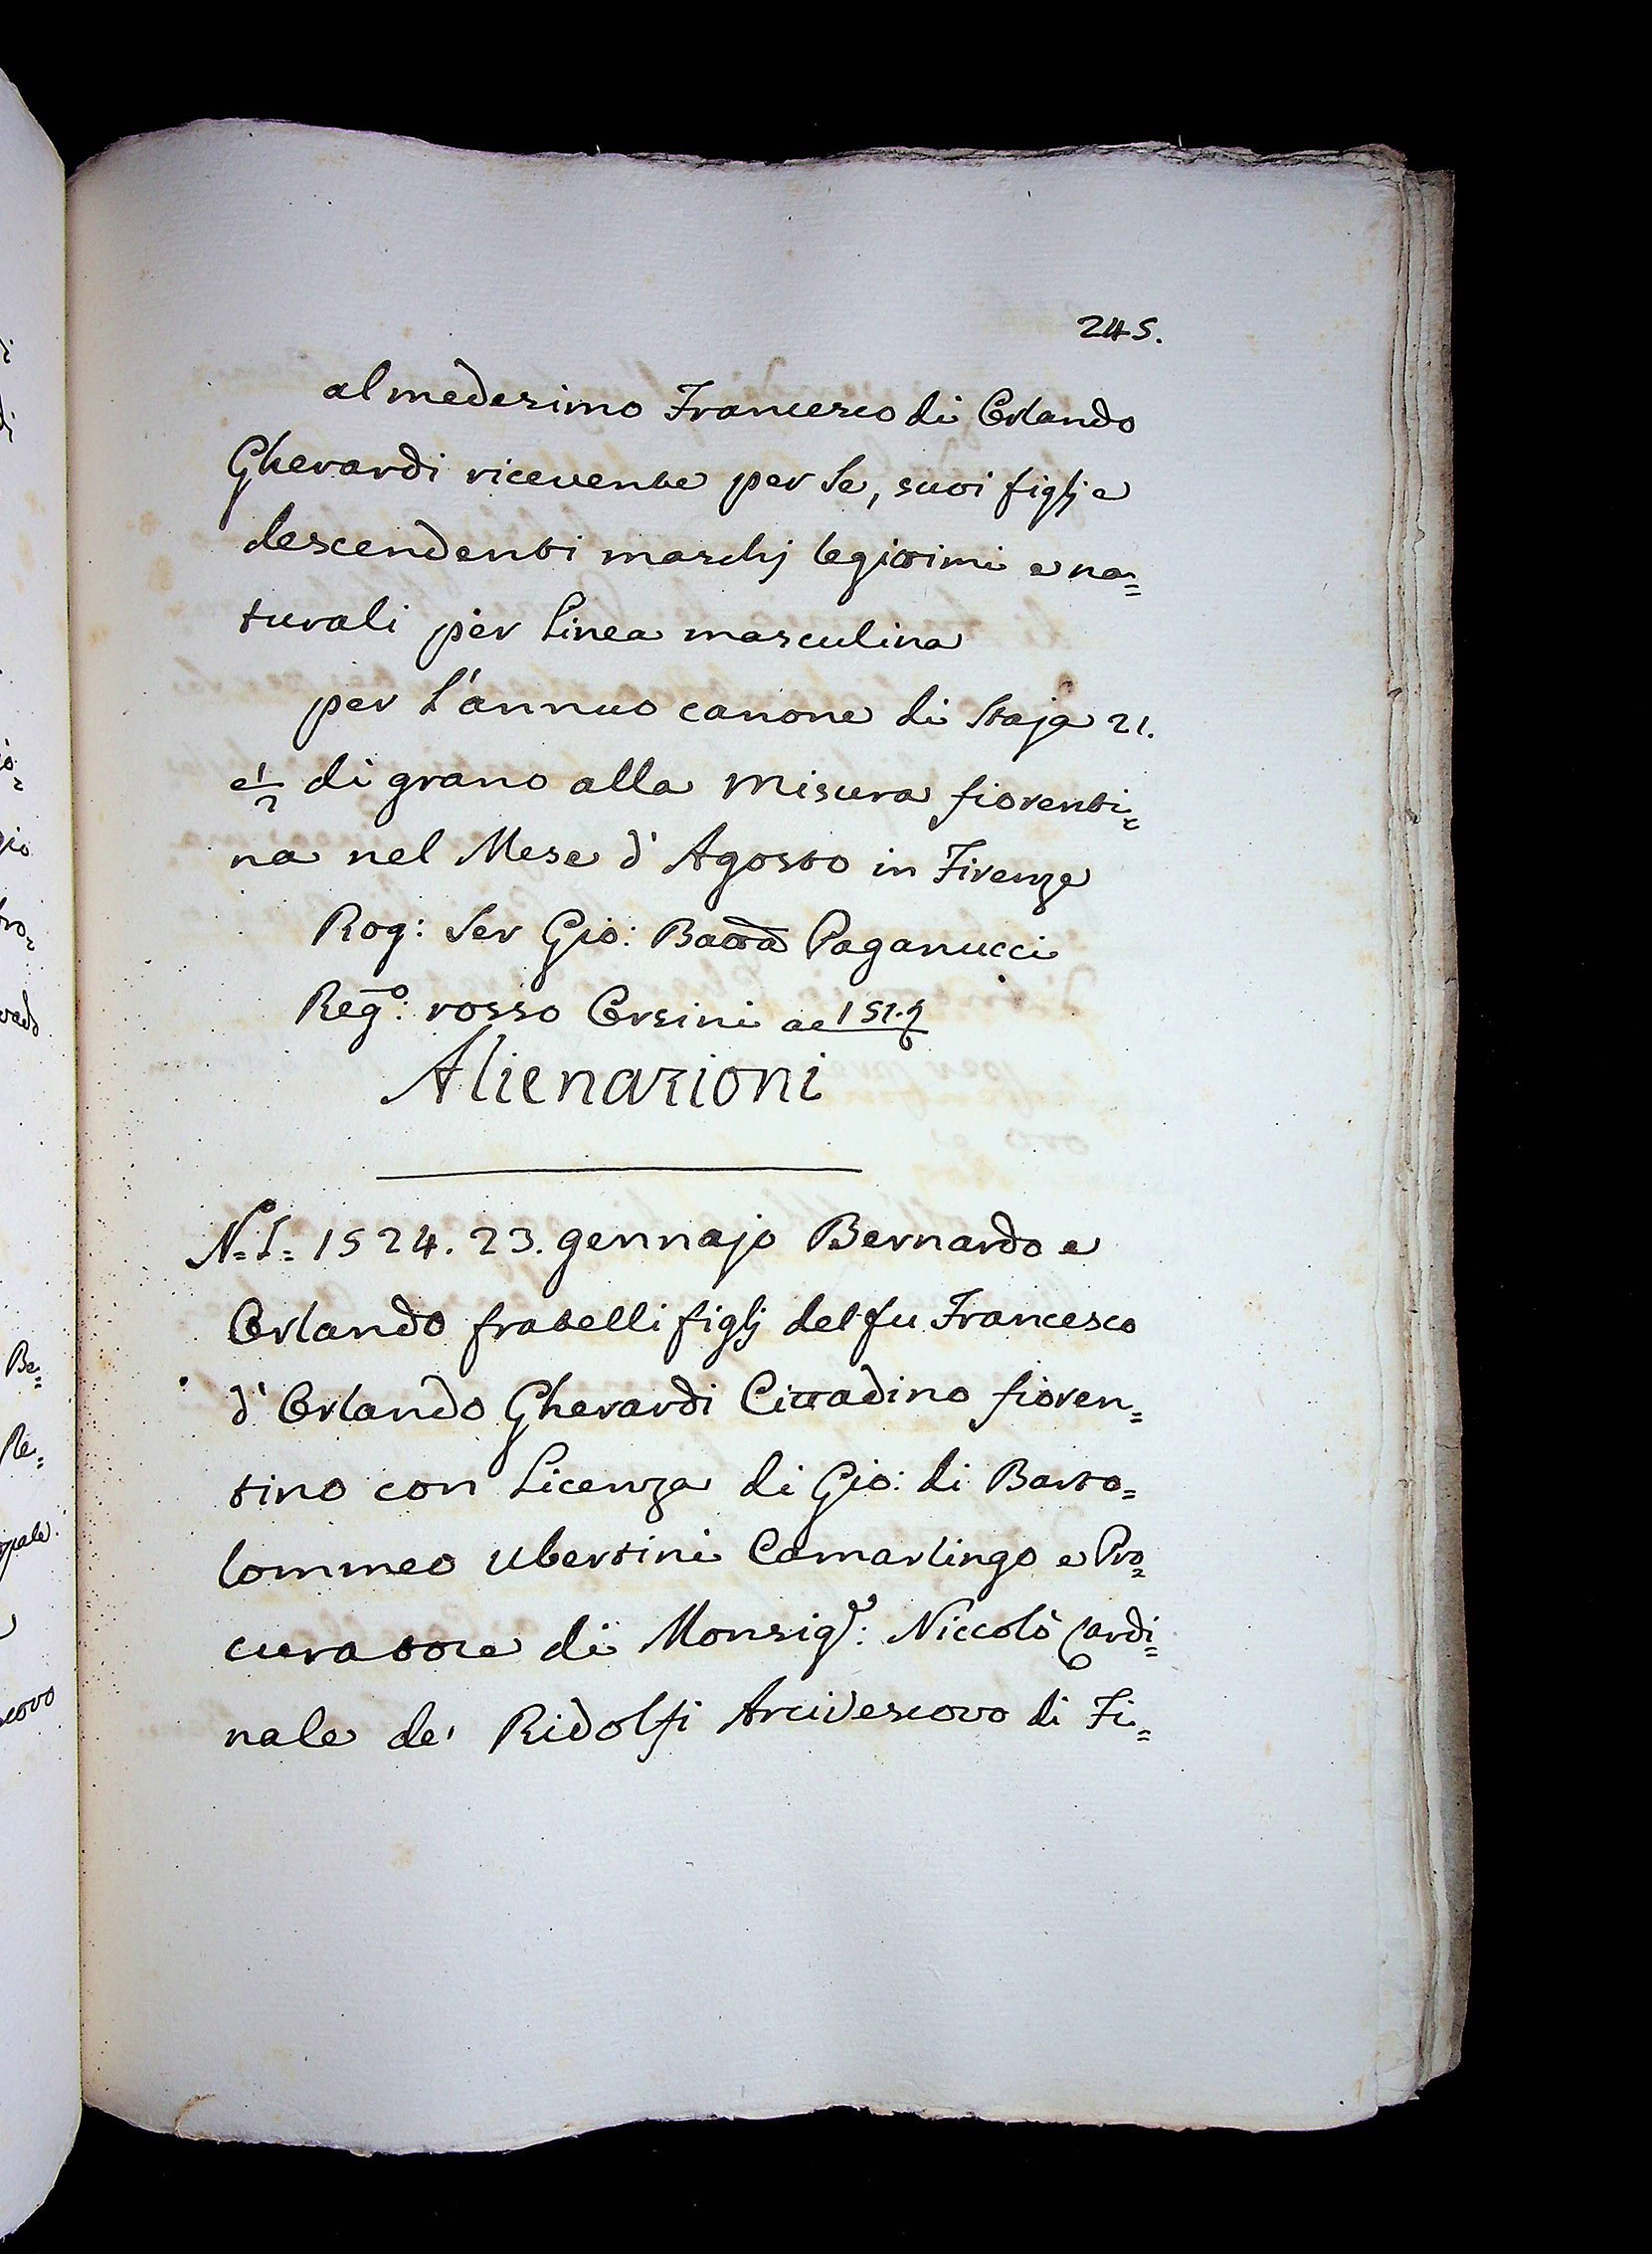 245.
al medesimo Francesco di Orlando
Gherardi ricevente per se, suoi figlj e
descendenti maschj legittimi e na=
turali per linea masculina
per l'annuo canone di Staja 21.
e ½ di grano alla misura fiorenti=
na nel Mese d'Agosto in Firenze
Rog: Ser Gio: Batta Paganucci
Rego: rosso Orsini ac
Alienazioni
N.I. 1524. 23. gennajo Bernardo e
Orlando fratelli figlj del fu Francesco
d'Orlando Gherardi Cittadino fioren=
tino con licenza di Gio: di Barto=
lommeo Ubertini Camarlingo e Pro=
curatore di Monsigr: Niccolò Cardi=
nale de' Ridolfi Arcivescovo di Fi=